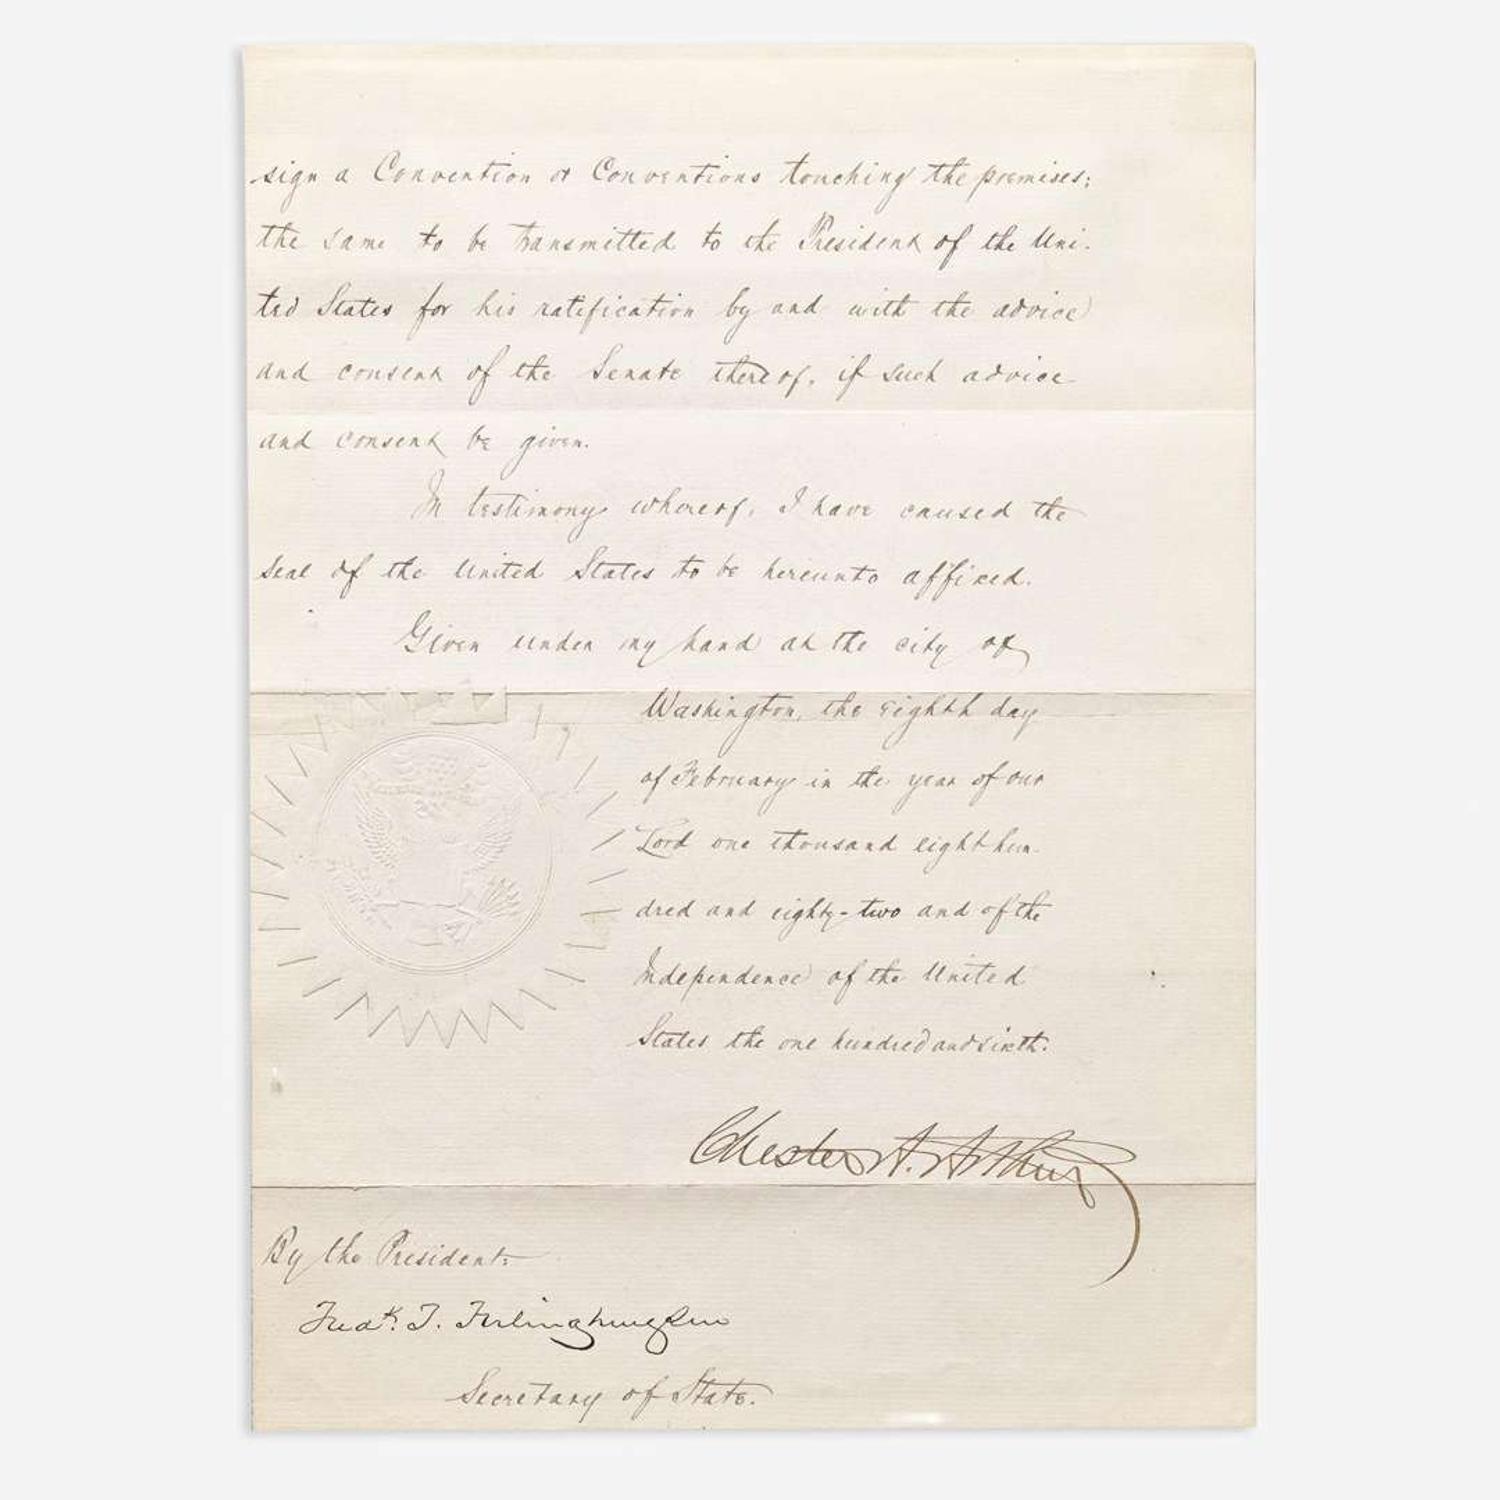 sign a Convention or Conventions touching the premises;
the same to be transmitted to the President of the Uni-
ted States for his ratification by and with the advice
and consent of the Senate thereof, if such advice
and consent be given.
In testimony whereof, I have caused the
seal of the United States to be hereunto affixed.
Given under my hand at the city of
Washington, the eighth day
of February in the year of our
Lord one thousand eight hun-
dred and eighty-two and of the
Independence of the United
States the one hundred and sixth.
Chester A. Arthur
By the President:
Fredk. T. Frelinghuysen
Secretary of State.